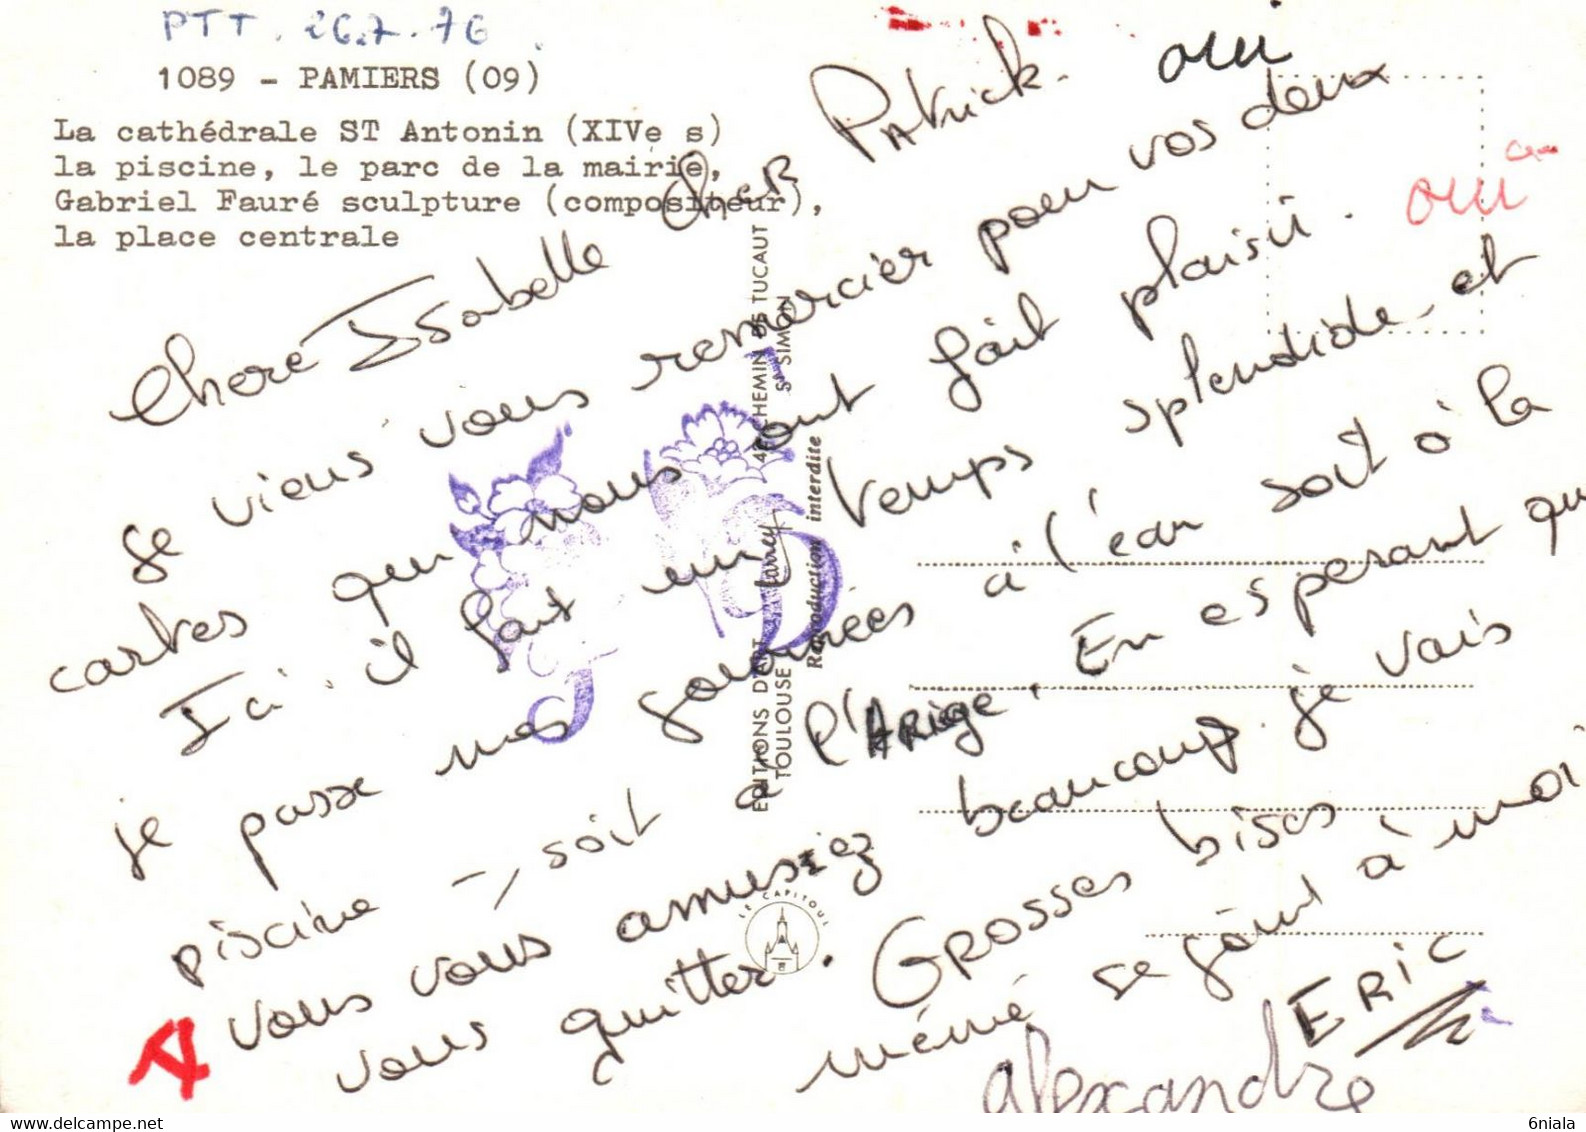 PTT. 26.7.76
1089 - PAMIERS (09)
La cathédrale ST Antonin (XIVe s)
la piscine, le parc de la mairie,
Gabriel Fauré sculpture (compositeur),
la place centrale
oui
oui
Chere Isabelle Cher Patrick.
je viens vous remercier pour vos deux
cartes qui nous ont fait plaisir.
Ici il fait un temps splendide et
je passe mes journées à l'eau soit à la
piscine, soit à l'Ariege. En esperant que
vous vous amusiez beaucoup je vais
vous quitter. GROSSES bises
mémé se joint à moi
ERIC
alexandre
EDITIONS D'ART Larrey 46 CHEMIN DE TUCAUT
TOULOUSE St SIMON
Reproduction interdite
LE CAPITOUL
www.delcampe.net
6niala